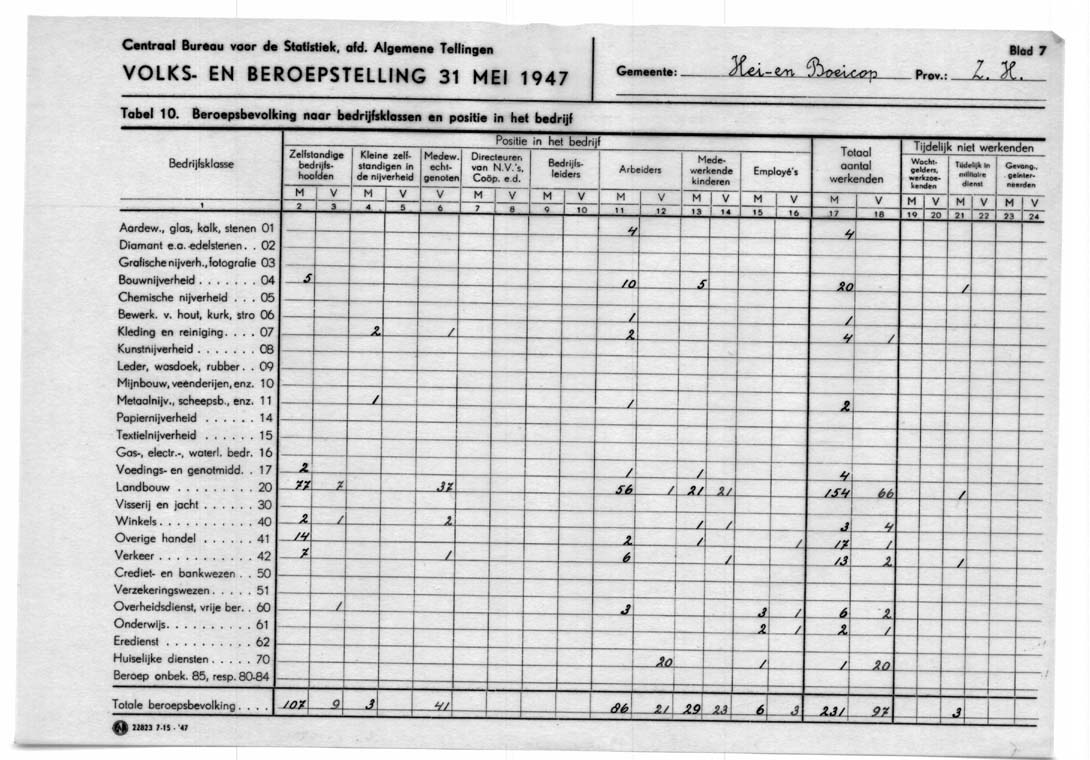 Centraal Bureau voor de Statistiek, afd. Algemene Tellingen
VOLKS- EN BEROEPSTELLING 31 MEI 1947
Gemeente: Hei-en Boeicop Prov.: Z. H.
Blad 7
Tabel 10. Beroepsbevolking naar bedrijfsklassen en positie in het bedrijf
Bedrijfsklasse
Positie in het bedrijf
Zelfstandige bedrijfs-hoofden
Kleine zelf-standigen in de nijverheid
Medew. echt-genoten
Directeuren van N.V.'s, Coöp. e.d.
Bedrijfs-leiders
Arbeiders
Mede-werkende kinderen
Employé's
Totaal aantal werkenden
Tijdelijk niet werkenden
Wacht-gelders, werkzoe-kenden
Tijdelijk in militaire dienst
Gevang., geïnter-neerden
M V M V V M V M V M V M V M V M V M V M V M V
1 2 3 4 5 6 7 8 9 10 11 12 13 14 15 16 17 18 19 20 21 22 23 24
Aardew., glas, kalk, stenen 01 4 4
Diamant e.a. edelstenen . . 02
Grafische nijverh., fotografie 03
Bouwnijverheid . . . . . . . 04 5 10 5 20 1
Chemische nijverheid . . . 05
Bewerk. v. hout, kurk, stro 06 1 1
Kleding en reiniging . . . . 07 2 1 2 4 1
Kunstnijverheid . . . . . . . 08
Leder, wasdoek, rubber . . 09
Mijnbouw, veenderijen, enz. 10
Metaalnijv., scheepsb., enz. 11 1 1 2
Papiernijverheid . . . . . . 14
Textielnijverheid . . . . . . 15
Gas-, electr.-, waterl. bedr. 16
Voedings- en genotmidd. . 17 2 1 1 4
Landbouw . . . . . . . . . 20 77 7 37 56 1 21 21 154 66 1
Visserij en jacht . . . . . . 30
Winkels . . . . . . . . . . . 40 2 1 2 1 1 3 4
Overige handel . . . . . . 41 14 2 1 1 17 1
Verkeer . . . . . . . . . . . 42 7 1 6 1 13 2 1
Crediet- en bankwezen . . 50
Verzekeringswezen . . . . . 51
Overheidsdienst, vrije ber. . 60 1 3 3 1 6 2
Onderwijs . . . . . . . . . . 61 2 1 2 1
Eredienst . . . . . . . . . . 62
Huiselijke diensten . . . . . 70 20 1 1 20
Beroep onbek. 85, resp. 80-84
Totale beroepsbevolking . . . . 107 9 3 41 86 21 29 23 6 3 231 97 3
22823 7-15 - '47